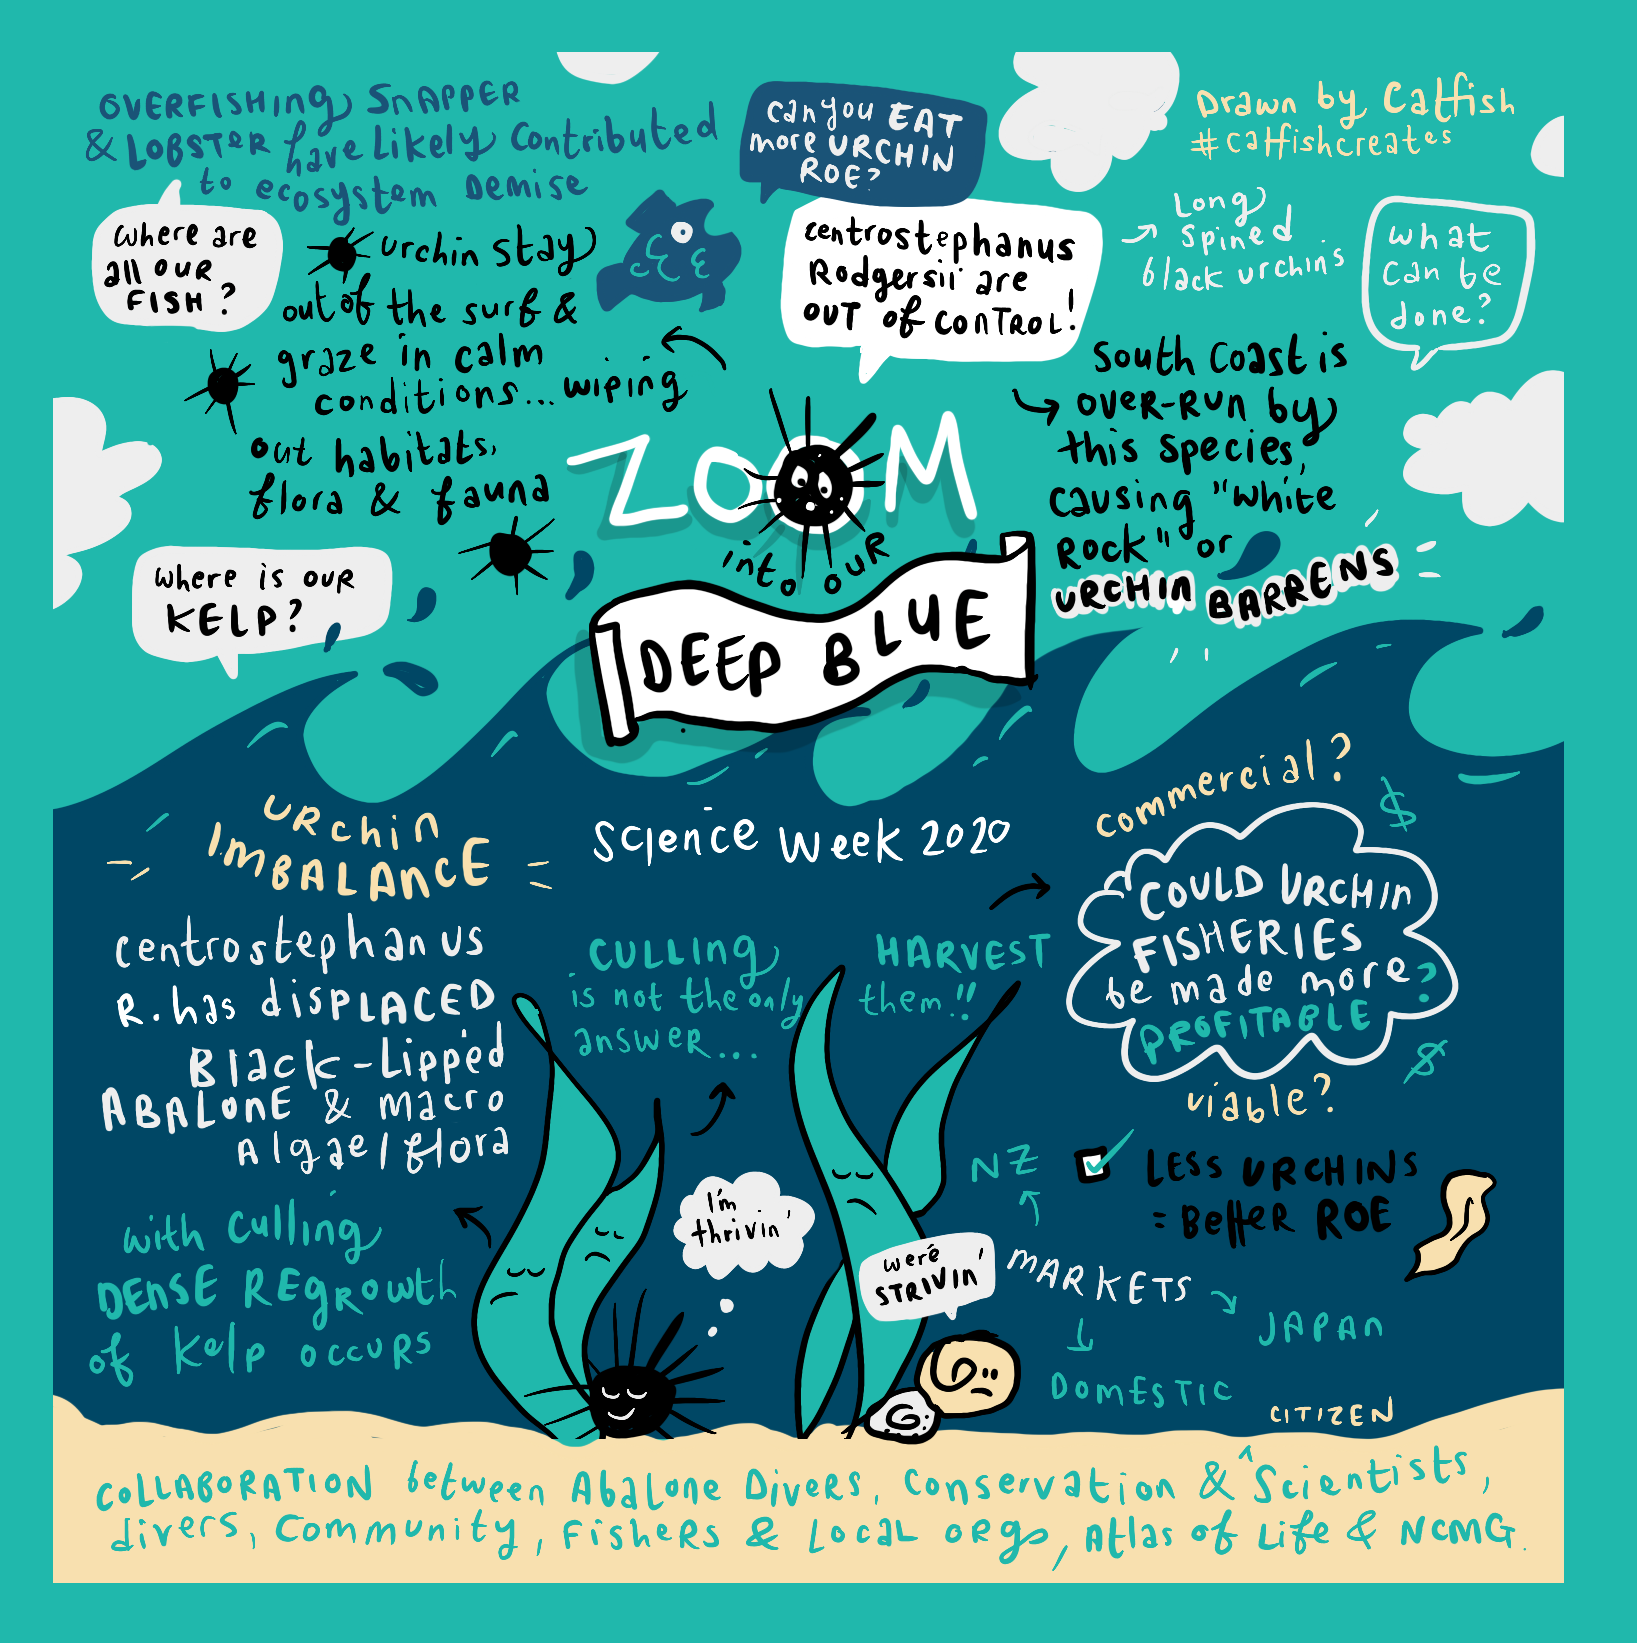 OVERFISHING SNAPPER
& LOBSTER have Likely Contributed
to ecosystem Demise
Where are
all OUR
FISH?
urchin stay
out of the surf &
graze in calm
conditions... wiping
out habitats,
flora & fauna
Where is OUR
KELP?
Can you EAT
more URCHIN
ROE?
Centrostephanus
Rodgersii are
OUT of CONTROL!
Drawn by Catfish
#catfishcreates
Long
Spined
black urchins
What
can be
done?
South Coast is
over-run by
this species,
causing "White
Rock" or
URCHIN BARRENS
ZOOM
into OUR
DEEP BLUE
Science Week 2020
URchin
IMBALANCE
Centrostephanus
R. has disPLACED
Black-Lipped
ABALONE & macro
Algae/flora
with Culling
DENSE REgrowth
of Kelp occurs
CULLing
is not the only
answer...
HARVEST
them!!
Commercial?
$
COULD URCHIN
FISHERIES
be made more?
PROFITABLE
$
viable?
LESS URCHINS
= Better ROE
NZ
MARKETS
JAPAN
DOMESTIC
I'm
thrivin'
were
STRIVIN'
CITIZEN
COLLABORATION between Abalone Divers, Conservation & ^ Scientists,
divers, Community, Fishers & Local orgs, Atlas of Life & NCMG.